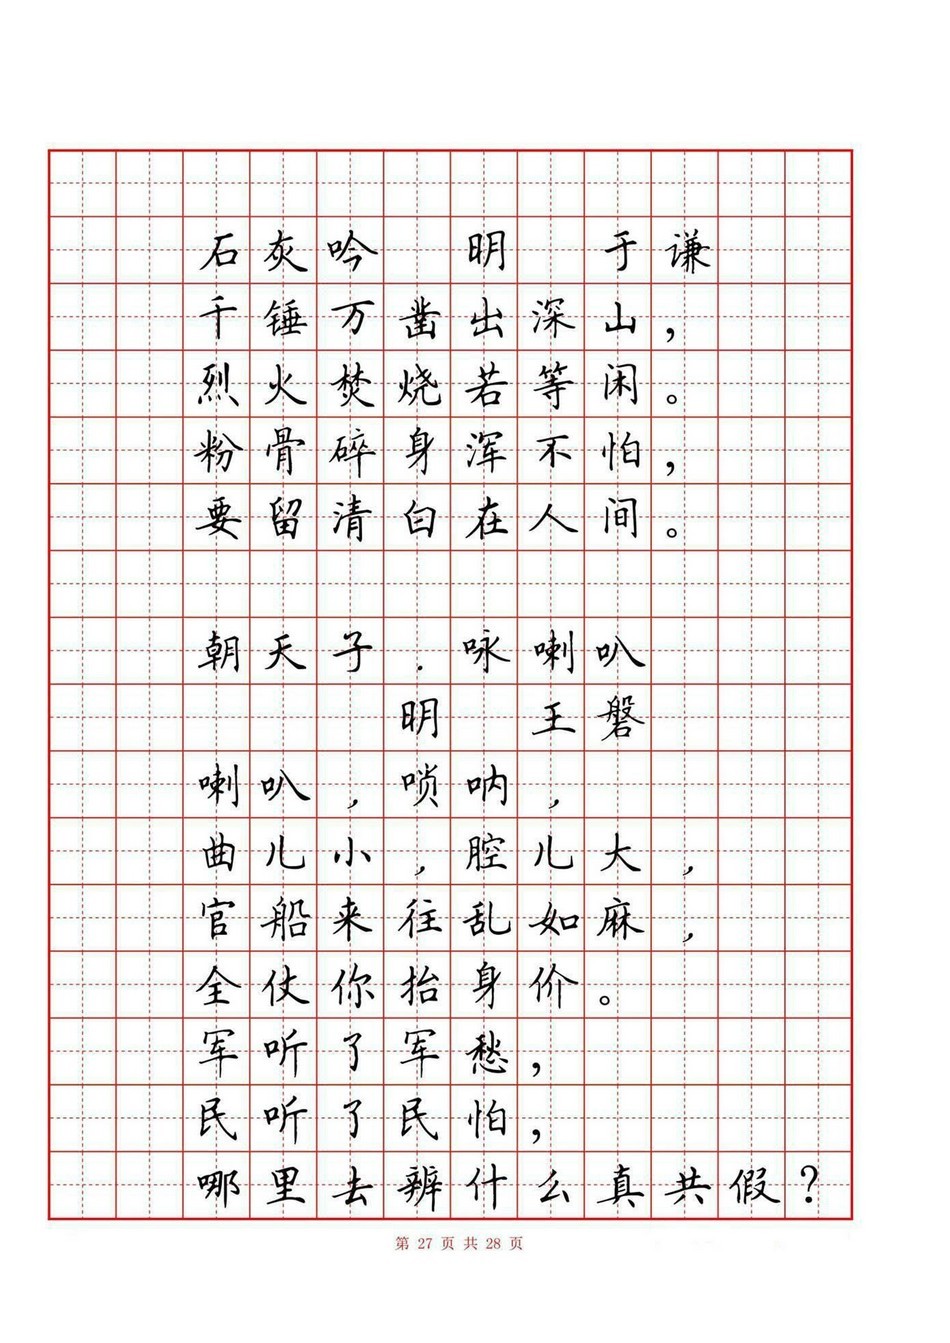 石灰吟 明 于谦
千锤万凿出深山，
烈火焚烧若等闲。
粉骨碎身浑不怕，
要留清白在人间。
朝天子.咏喇叭
明 王磐
喇叭，唢呐，
曲儿小，腔儿大，
官船来往乱如麻，
全仗你抬身价。
军听了军愁，
民听了民怕，
哪里去辨什么真共假？
第 27 页 共 28 页